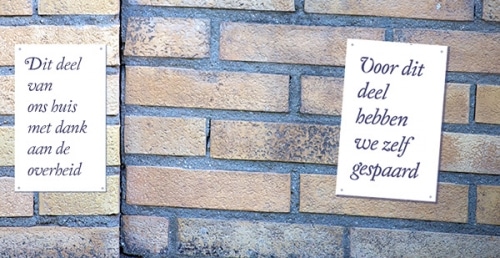 Dit deel
van
ons huis
met dank
aan de
overheid
Voor dit
deel
hebben
we zelf
gespaard